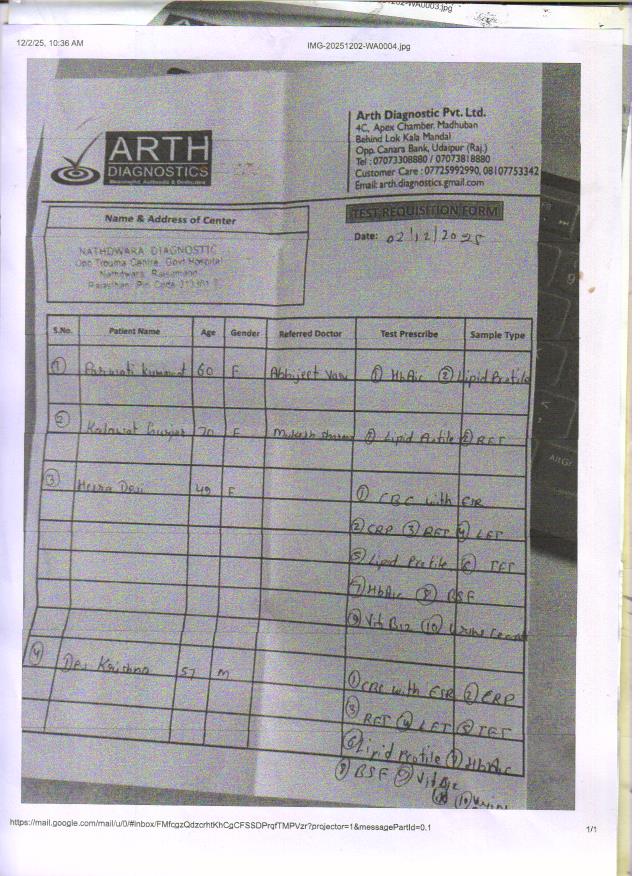 12/2/25, 10:36 AM
IMG-20251202-WA0004.jpg
ARTH
DIAGNOSTICS
Arth Diagnostic Pvt. Ltd.
4C, Apex Chamber, Madhuban
Behind Lok Kala Mandal
Opp. Canara Bank, Udaipur (Raj.)
Tel : 07073308880 / 07073818880
Customer Care : 07725992990, 08107753342
Email: arth.diagnostics.gmail.com
Name & Address of Center
TEST REQUISITION FORM
Date: 02/12/2025
NATHDWARA DIAGNOSTIC
Opp Trouma Centre, Govt Hospital
Nathdwara, Rajsamand
Rajasthan, Pin Code
S.No. Patient Name Age Gender Referred Doctor Test Prescribe Sample Type
① Parwati Kumawat 60 F Abhijeet ① HbA1c ② Lipid Profile
② Kalawat Gurjar 70 F Mukesh Sharma ① Lipid Profile ② RFT
③ Heera Devi 49 F ① CBC with ESR
② CRP ③ RFT ④ LFT
⑤ Lipid Profile ⑥ TFT
⑦ HbA1c ⑧ BSF
⑨ Vit B12 ⑩ Urine
④ Dev Krishna 57 M ① CBC with ESR ② CRP
③ RFT ④ LFT ⑤ TFT
⑥ Lipid Profile ⑦ HbA1c
⑧ BSF ⑨ Vit B12
⑩ Urine
AltGr
https://mail.google.com/mail/u/0/#inbox/FMfcgzQdzcrhtKhCgCFSSDPrqfTMPVzr?projector=1&messagePartId=0.1
1/1